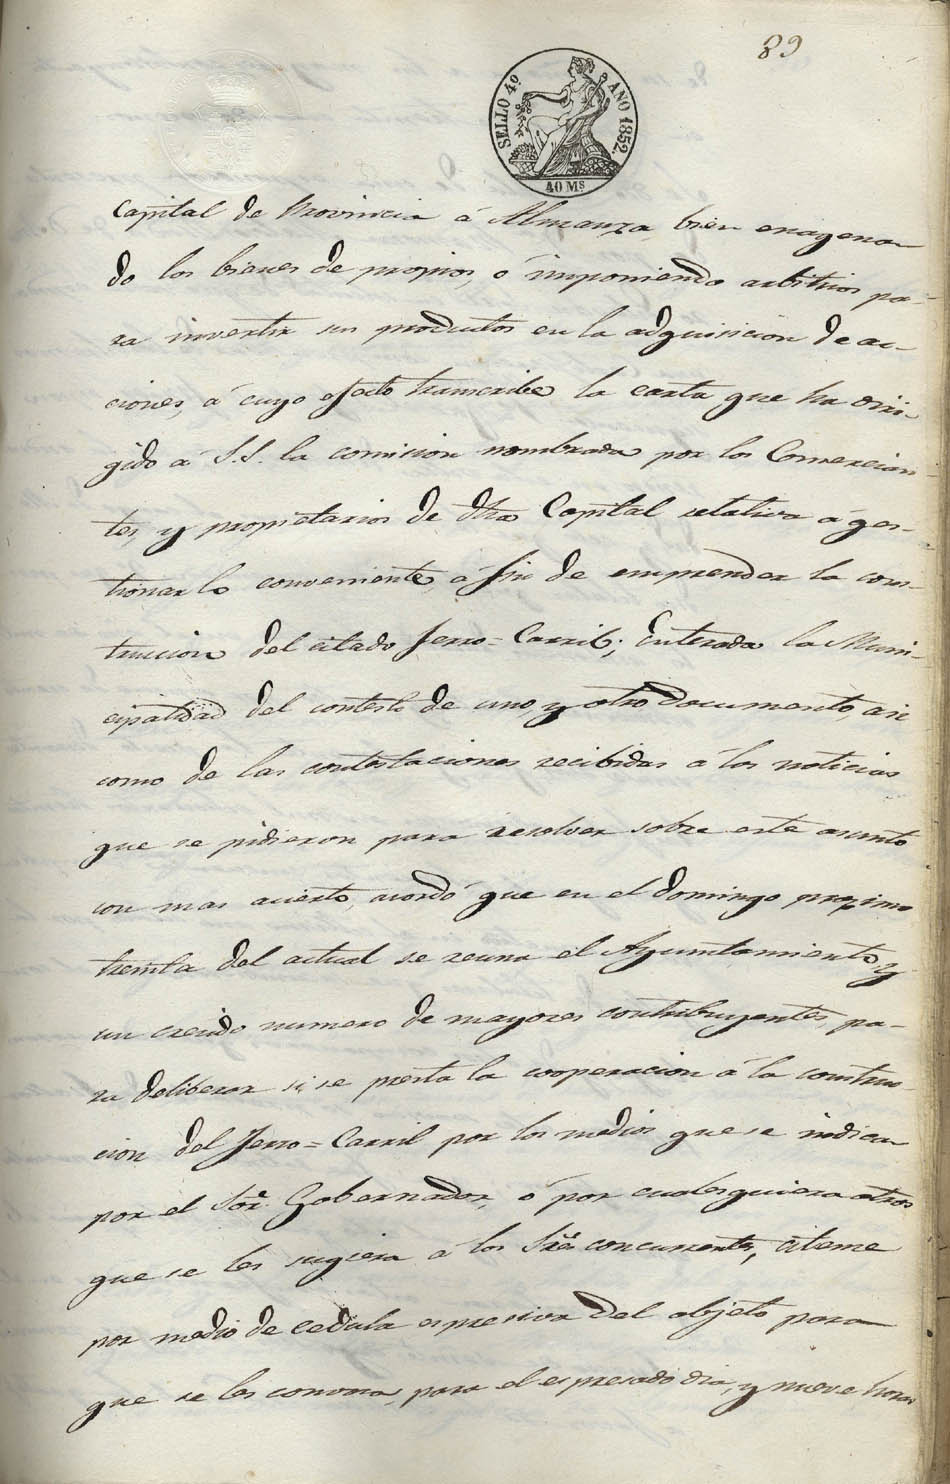 89
SELLO 4º AÑO 1852.
40 Ms
Capital de Provincia á Almanza, bien enagenan
do los bienes de propios, ó imponiendo arbitrios pa-
ra invertir sus productos en la adquisicion de ac-
ciones, á cuyo efecto transcribe la carta que ha diri-
gido á S.S. la comision nombrada por los Comercian-
tes, y propietarios de dha Capital relativa á ges-
tionar lo conveniente, á fin de emprender la cons-
truccion del citado Ferro=Carril; Enterada la Muni-
cipalidad del contesto de uno y otro documento, asi
como de las contestaciones recibidas á las noticias
que se pidieron para resolver sobre este asunto
con mas acierto, acordó que en el domingo proximo
treinta del actual se reuna el Ayuntamiento, y
un crecido numero de mayores contribuyentes, pa-
ra deliberar si se presta la cooperacion á la construc-
cion del Ferro=Carril por los medios que se indican
por el Sor. Gobernador, ó por cualesquiera otros
que se les sugiera á los Sres concurrentes, citeme
por medio de cedula espresiva del objeto para
que se les convoca, para el espresado dia, y nueve horas